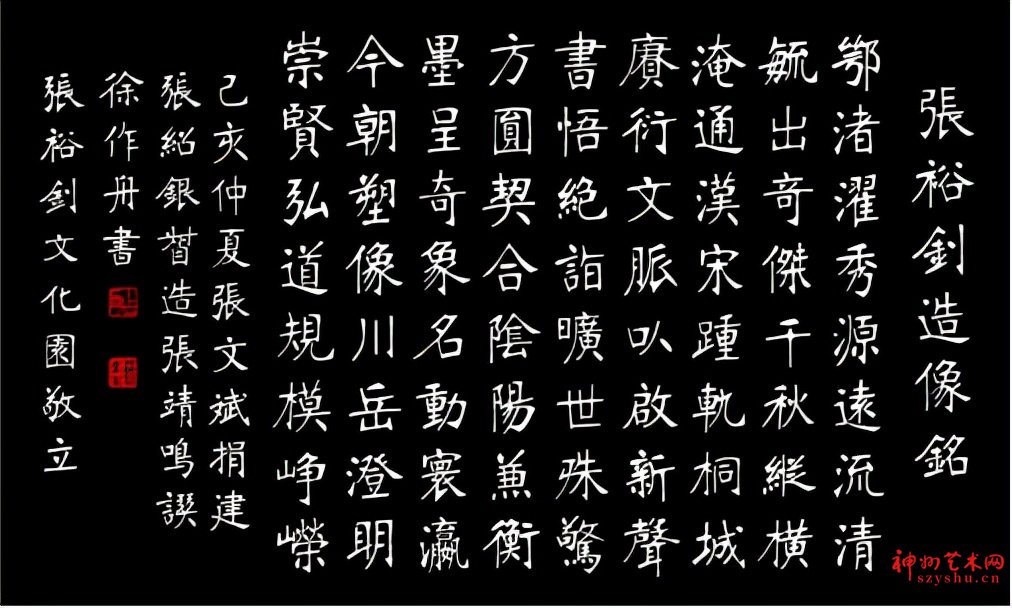 張裕釗造像銘
鄂渚濯秀源遠流清
毓出奇傑千秋縱橫
淹通漢宋踵軌桐城
賡衍文脈以啟新聲
書悟絕詣曠世殊驚
方圓契合陰陽兼衡
墨呈奇象名動寰瀛
今朝塑像川岳澄明
崇賢弘道規模崢嶸
己亥仲夏張文斌捐建
張紹銀督造張靖鳴譔
徐作舟書
張裕釗文化園敬立
神州艺术网
szyshu.cn